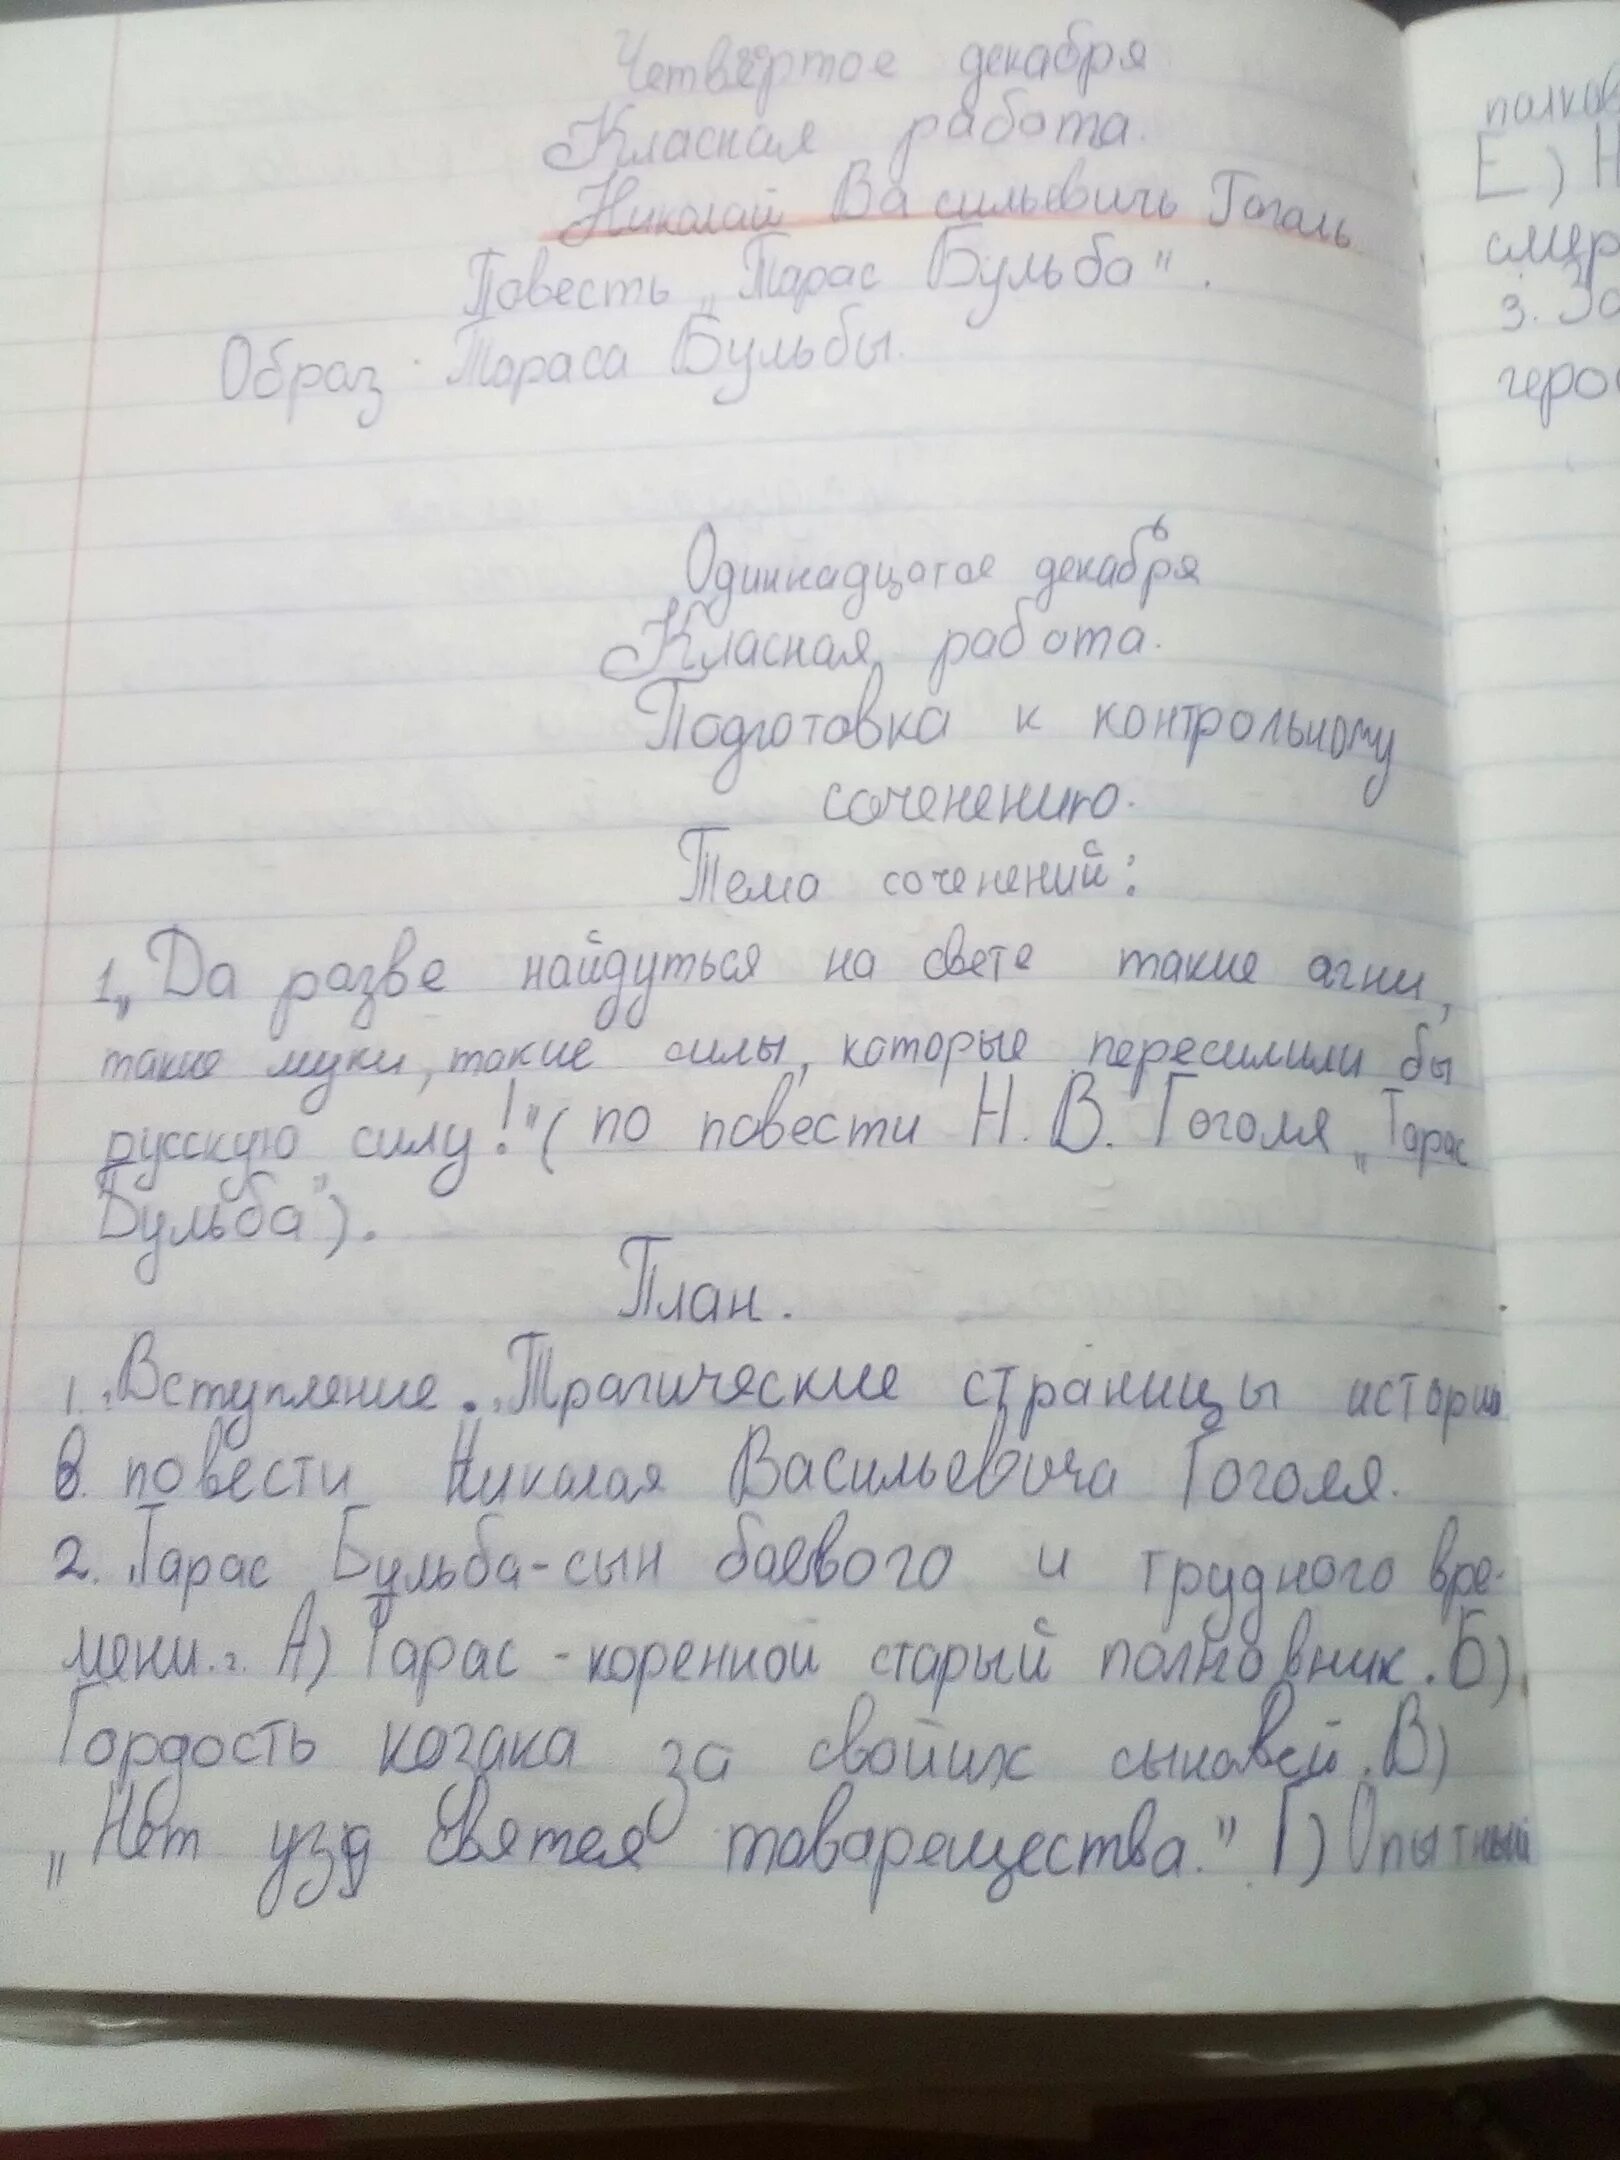 Четвёртое декабря
Класная работа.
Николай Васильевичь Гоголь
Повесть „Тарас Бульба".
Образ Тараса Бульбы.
Одиннадцатое декабря
Класная работа.
Подготовка к контрольному
соченению.
Тема соченений:
1„Да разве найдуться на свете такие агни,
такие муки, такие силы, которые пересилили бы
русскую силу!" (по повести Н. В. Гоголя „Тарас
Бульба").
План.
1. Вступление. Трагические страницы истории
в повести Николая Васильевича Гоголя.
2. Тарас Бульба-сын боевого и трудного вре-
мени. А) Тарас - коренной старый полковник. Б)
Гордость козака за свойих сыновей. В)
„Нет узд святея товарещества." Г) Опытный
полков
Е) Н
смер
3. За
геро